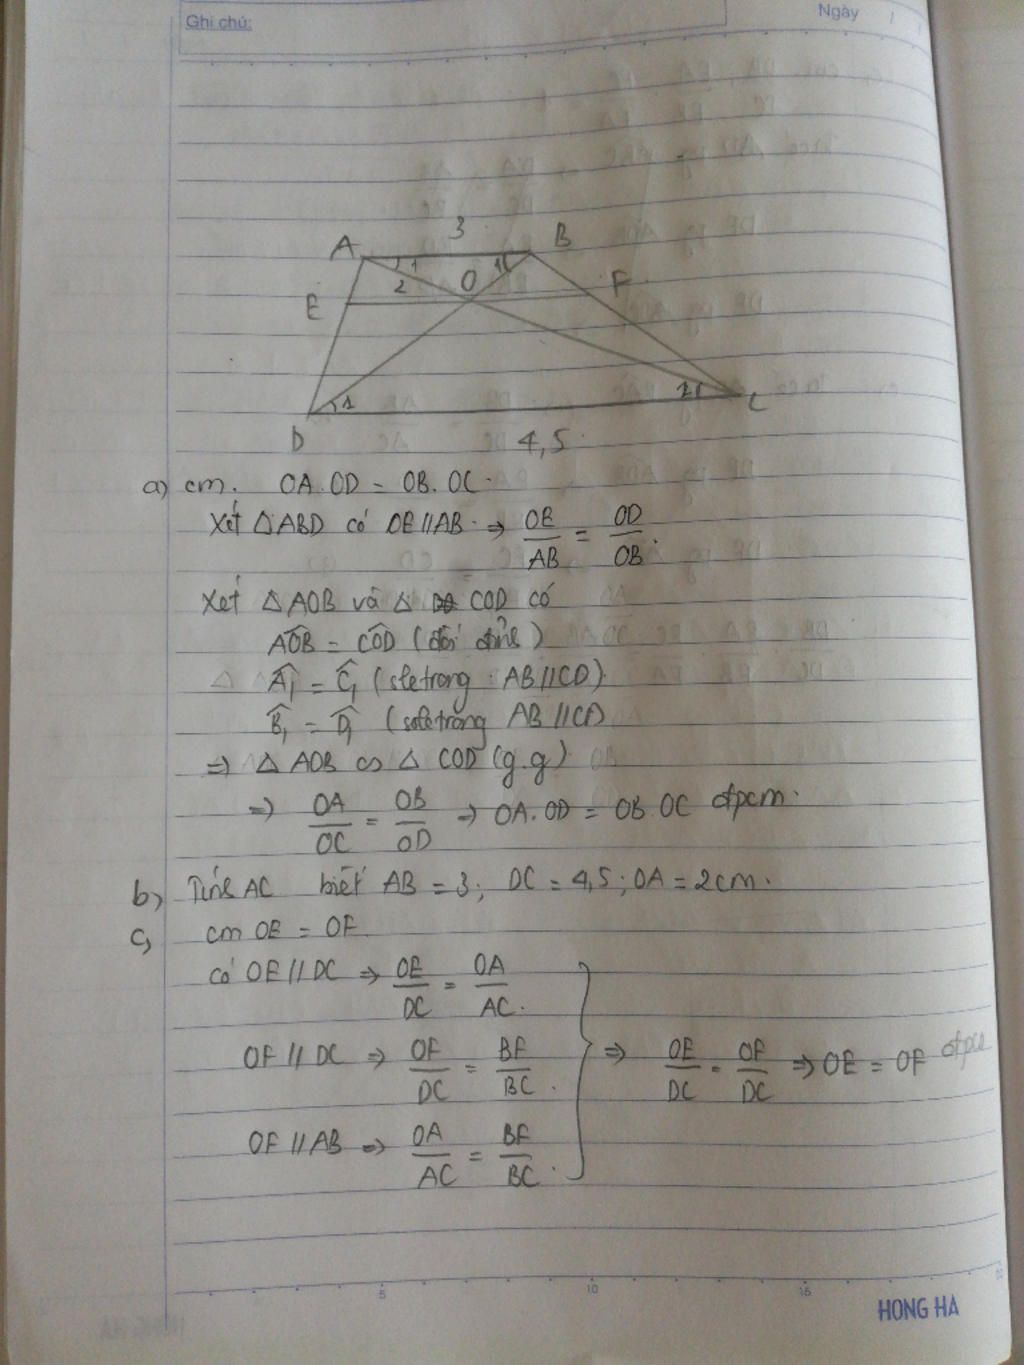 Ghi chú:
Ngày
3
A
B
1
1
2
O
E
F
1
1
D
C
4,5
a) cm. OA.OD = OB.OC.
Xét △ABD có OE//AB. ⇒ OE/AB = OD/OB.
Xét △AOB và △ COD có
AOB = COD (đối đỉnh)
A1 = C1 (sletrong : AB//CD)
B1 = D1 (soletrong AB//CD
⇒ △ AOB ∽ △ COD (g.g)
⇒ OA/OC = OB/OD ⇒ OA.OD = OB.OC đpcm.
b, Tính AC biết AB = 3; DC = 4,5; OA = 2cm.
c, cm OE = OF
có OE // DC ⇒ OE/DC = OA/AC.
OF // DC ⇒ OF/DC = BF/BC. ⇒ OE/DC = OF/DC ⇒ OE = OF đpcm
OF // AB ⇒ OA/AC = BF/BC.
5 10 15
HONG HA